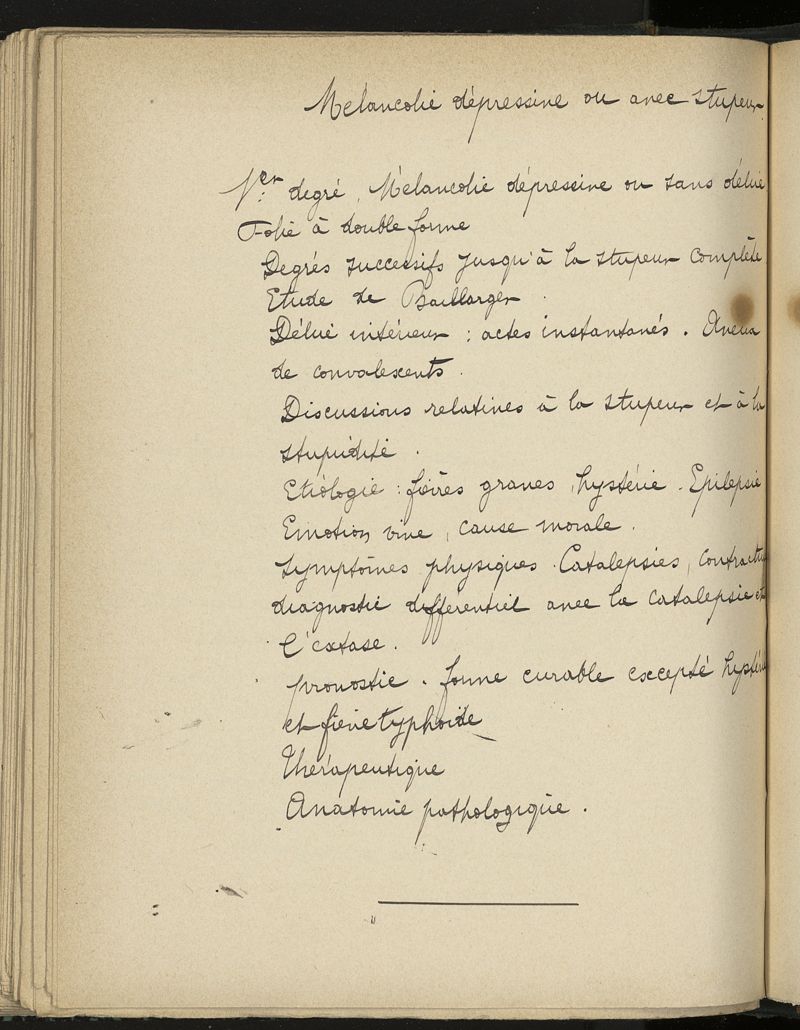 Mélancolie dépressive ou avec stupeur.
1er degré. Mélancolie dépressive ou sans délire
Folie à double forme
Degrés successifs jusqu'à la stupeur complète
Etude de Baillarger.
Délire intérieur : actes instantanés. Aveux
de convalescents.
Discussions relatives à la stupeur et à la
stupidité.
Etiologie : fièvres graves, hystérie. Epilepsie
Emotion vive, cause morale.
Symptômes physiques. Catalepsies, contractu
diagnostic différentiel avec la catalepsie et
l'extase.
pronostic. forme curable excepté hystérie
et fièvre typhoïde
Thérapeutique
Anatomie pathologique.